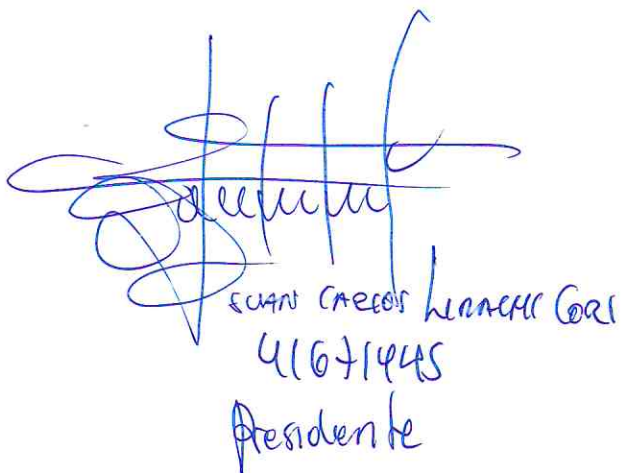 JUAN CARLOS LIRACHI CORI
41671445
Presidente